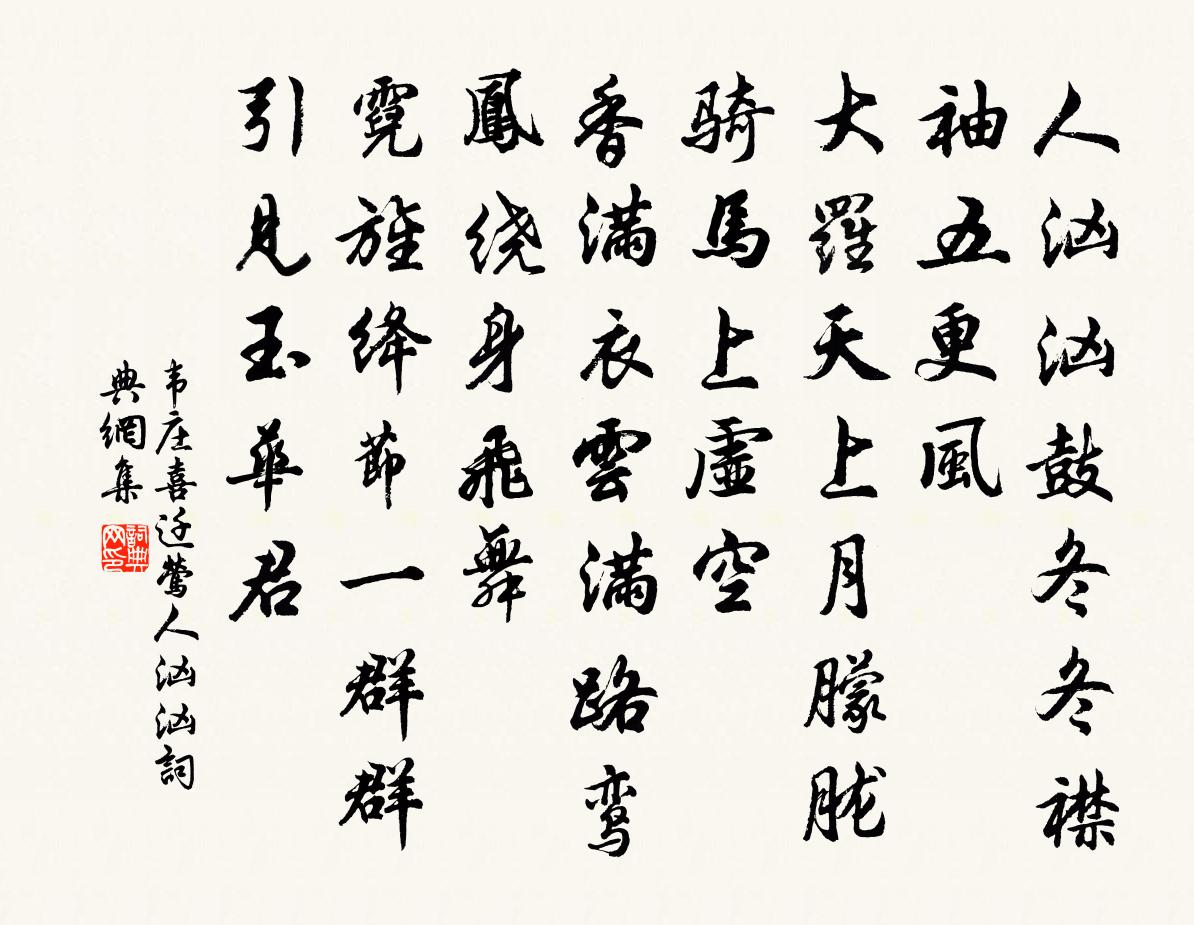 人汹汹鼓冬冬襟
袖五更風
大羅天上月朦胧
骑馬上虛空
香满衣雲满路鸾
鳳绕身飛舞
霓旌绛節一群群
引見玉華君
韦庄喜迁莺人汹汹詞
典網集
詞典网印